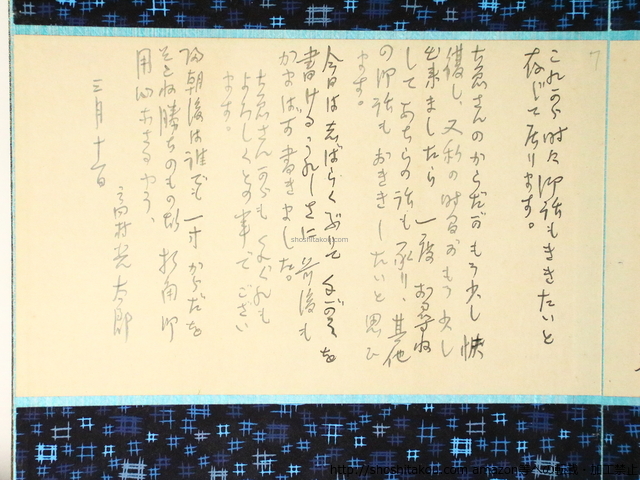 これから時々御話もききたいと
存じて居ります。
ちゑさんのからだがもう少し恢
復し、又私の時間がもう少し
出来ましたら一度お尋ね
してあちらの話も承り、其他
の御話もおききしたいと思ひ
ます。
今日はしばらくぶりで手がみを
書けるうれしさに前後も
かまはず書きました。
ちゑさんからもくれぐれも
よろしくとの事でござい
ます。
帰朝後は誰でも一寸からだを
そこね勝ちのもの故 折角御
用心なさるやう、
三月十一日
高村光太郎
shoshitakou.com
http://shoshitakou.com amazon等への転載・加工禁止